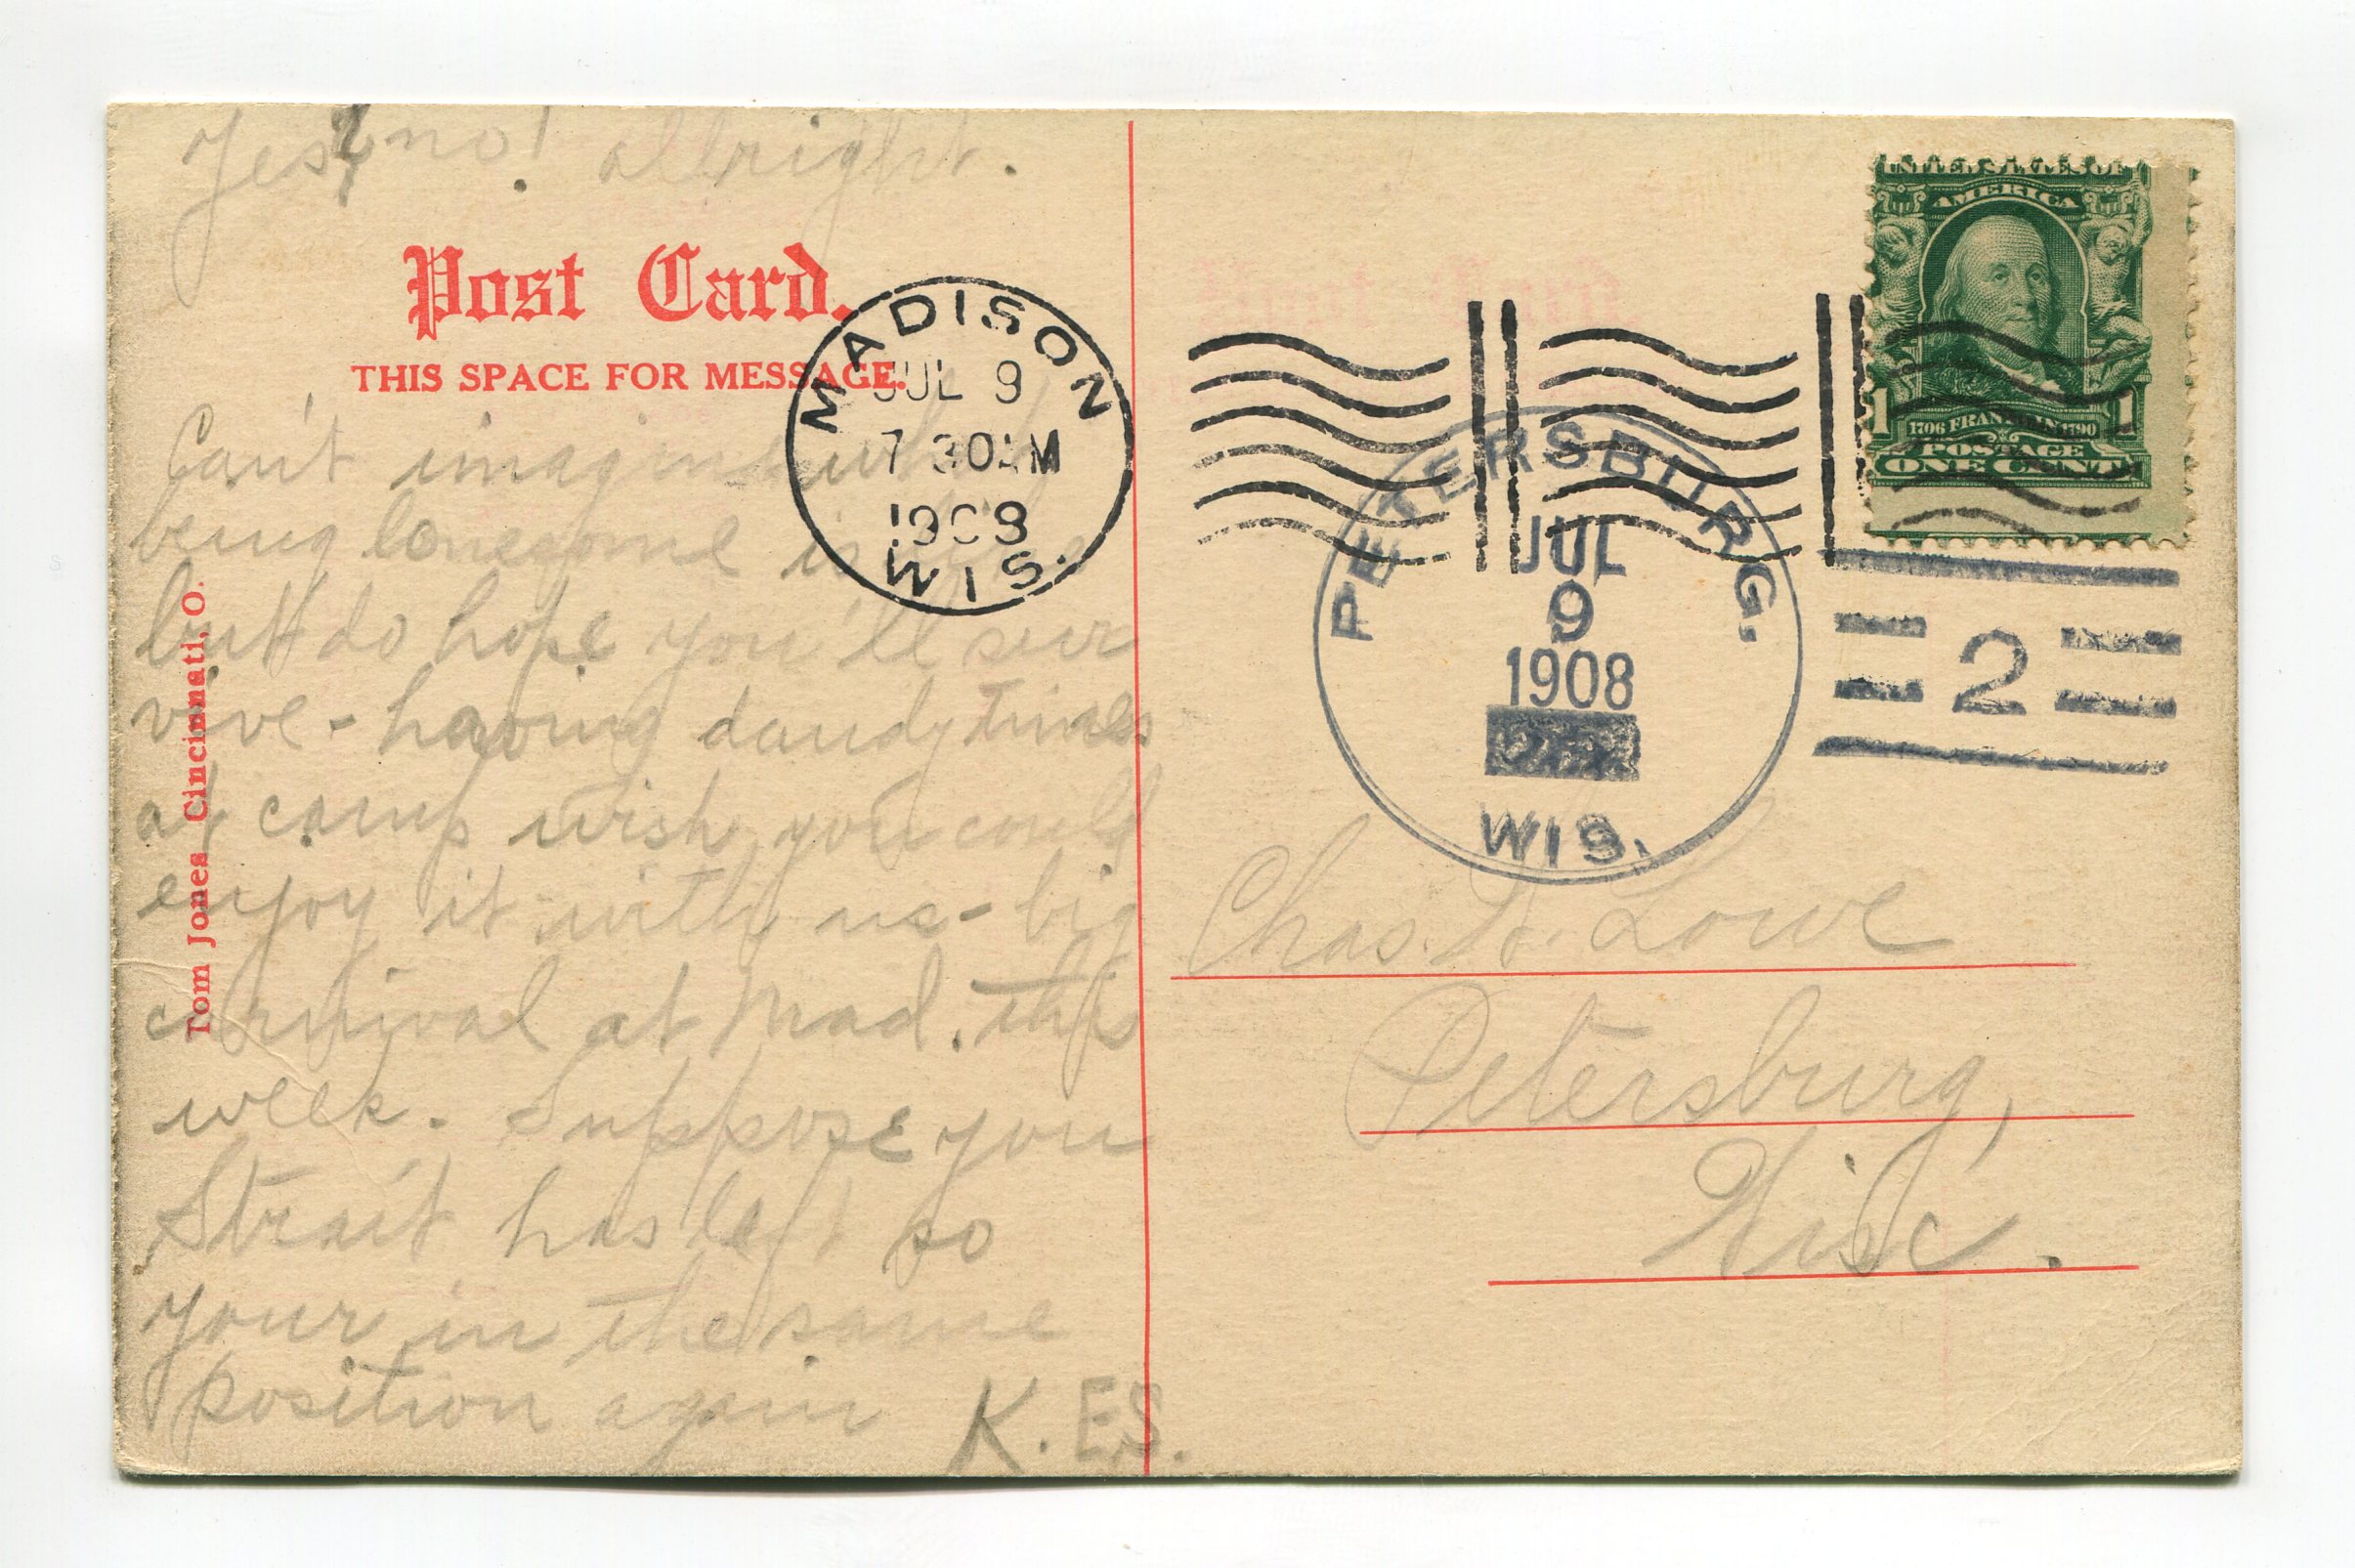 Yes & no! allright.
Post Card.
THIS SPACE FOR MESSAGE.
Can't imagine what
being lonesome is
but do hope you'll sur
vive - having dandy times
at camp wish you could
enjoy it with us - big
carnival at Mad. this
week. Suppose you
Strait has left so
your in the same
position again K.E.S.
Tom Jones Cincinnati, O.
MADISON
JUL 9
7 30 M
1908
WIS.
UNITED STATES OF
AMERICA
1 1
1706 FRANKLIN 1790
POSTAGE
ONE CENT
PETERSBURG.
JUL
9
1908
WIS.
2
Chas. W. Lowe
Petersburg,
Wisc.